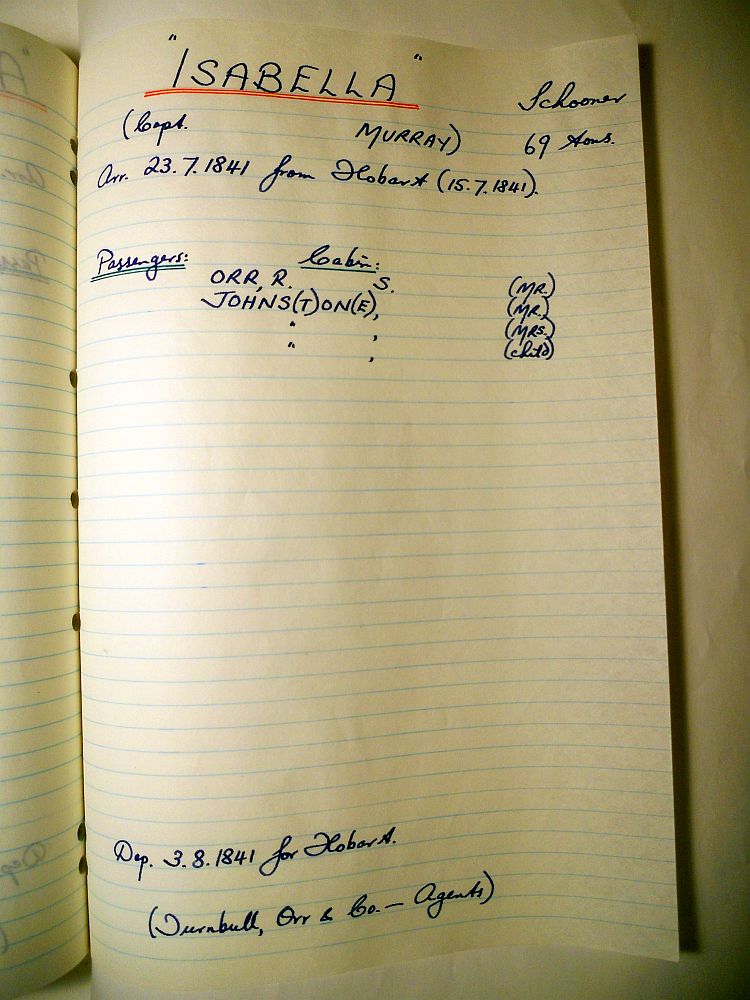 "ISABELLA" Schooner
(Capt. MURRAY) 69 tons.
Arr. 23.7.1841 from Hobart (15.7.1841).
Passengers: Cabin:
ORR, R. S. (MR.)
JOHNS(T)ON(E), (MR.)
" , (MRS.)
" , (child)
Dep. 3.8.1841 for Hobart.
(Turnbull, Orr & Co. — Agents)